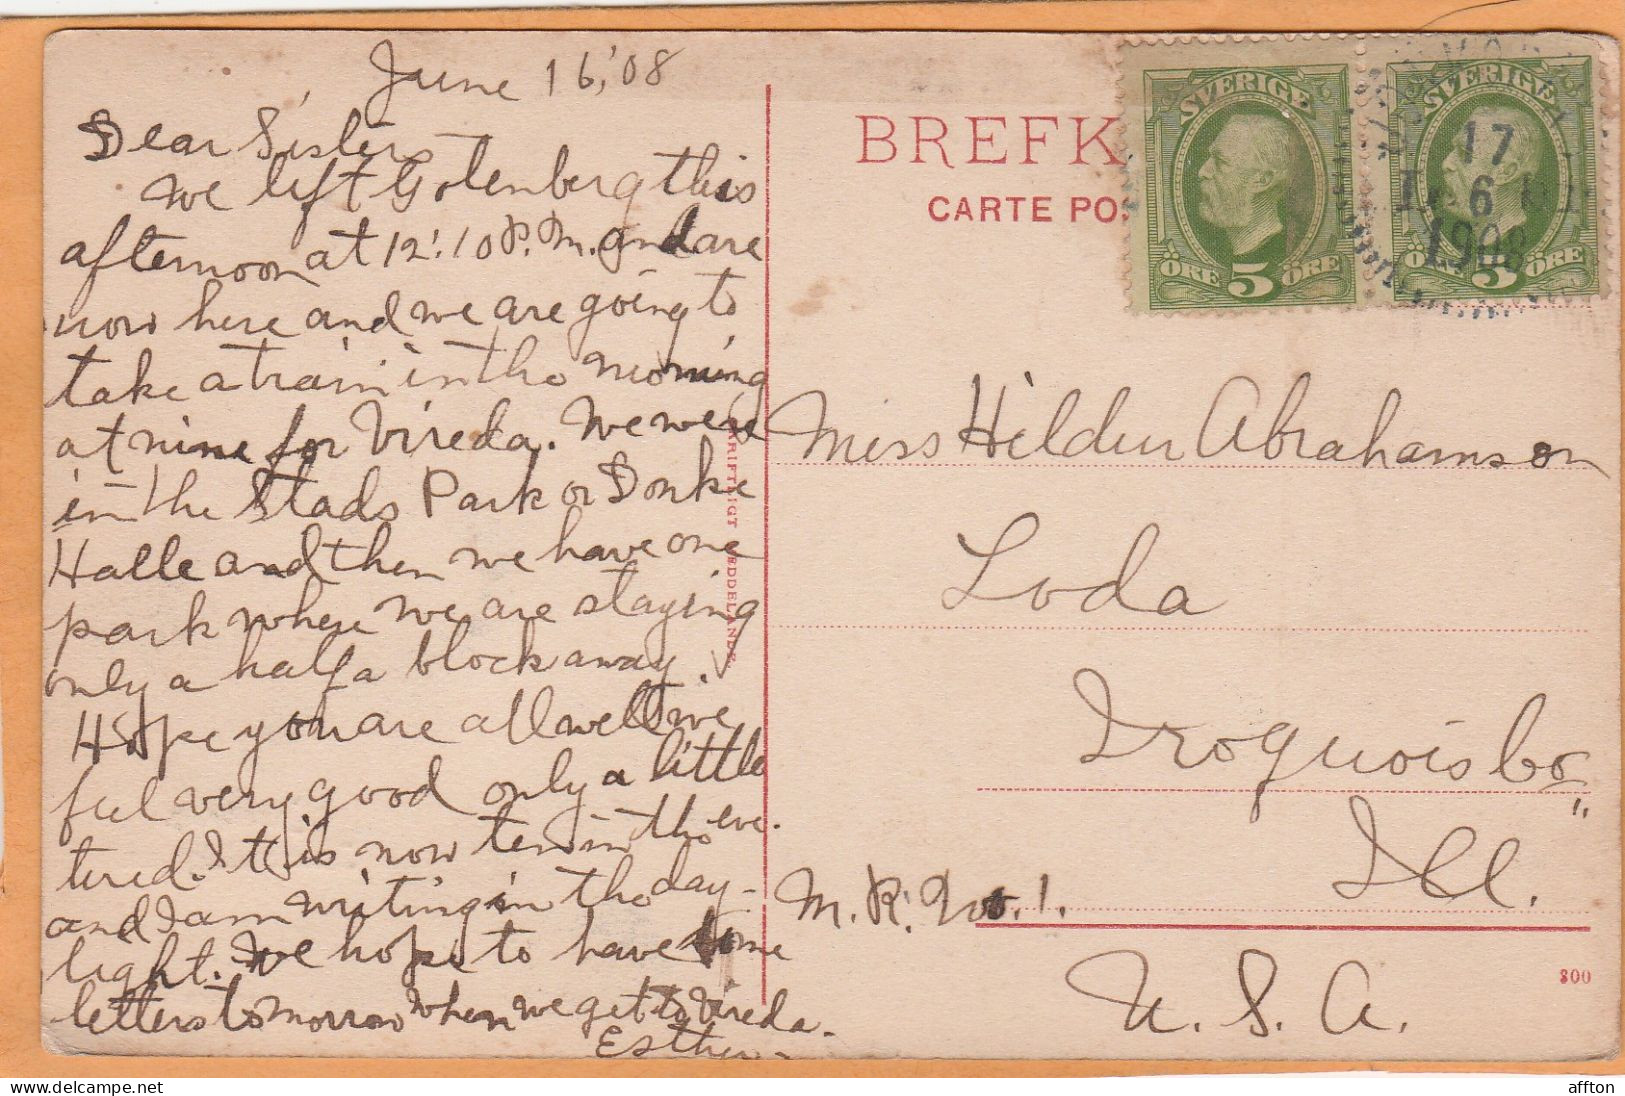 June 16,'08
Dear Sisters
We left Gotenberg this
afternoon at 12:10 P.M. and are
now here and we are going to
take a train in the morning
at nine for Vireda. We were
in the Stads Park or Donke
Halle and then we have one
park where we are staying
only a half a block away.
Hope you are all well we
feel very good only a little
tired. It is now ten in the eve.
and I am writing in the day-
light. We hope to have some
letters tomorrow when we get to Vireda.
Esther.
BREFK
CARTE POS
SVERIGE
ÖRE 5 ÖRE
SVERIGE
ÖRE 5 ÖRE
17
6
1908
Miss Hildur Abrahamson
Loda
Iroquois Co
Ill.
M. R. No. 1.
U. S. A.
800
affton